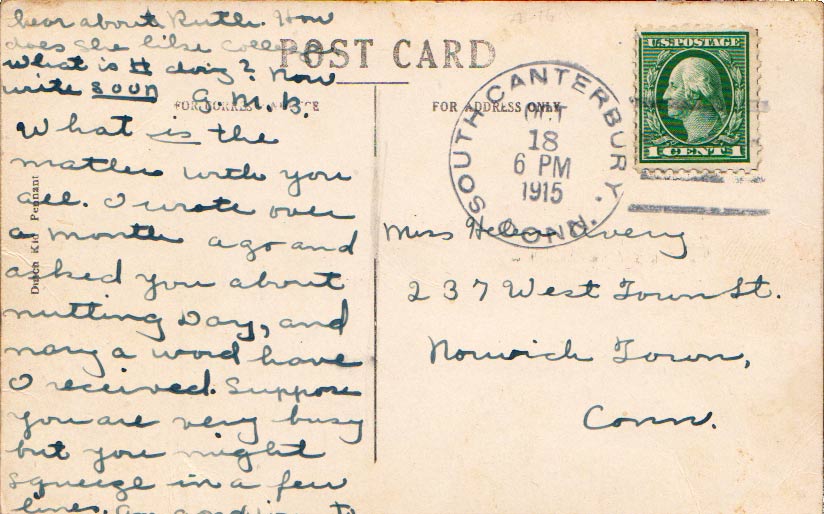 hear about Ruth. How
does she like College
What is H doing? Now
write soon G. M. B.
POST CARD
FOR CORRESPONDENCE
FOR ADDRESS ONLY
What is the
matter with you
all. I wrote over
a month ago and
asked you about
nutting Day, and
nary a word have
I received. Suppose
you are very busy
but you might
squeeze in a few
lines. Am anxious to
Dutch Kid Pennant
SOUTH CANTERBURY.
OCT
18
6 PM
1915
CONN.
U.S. POSTAGE
1 CENT 1
Miss Helen Avery
237 West Town St.
Norwich Town,
Conn.